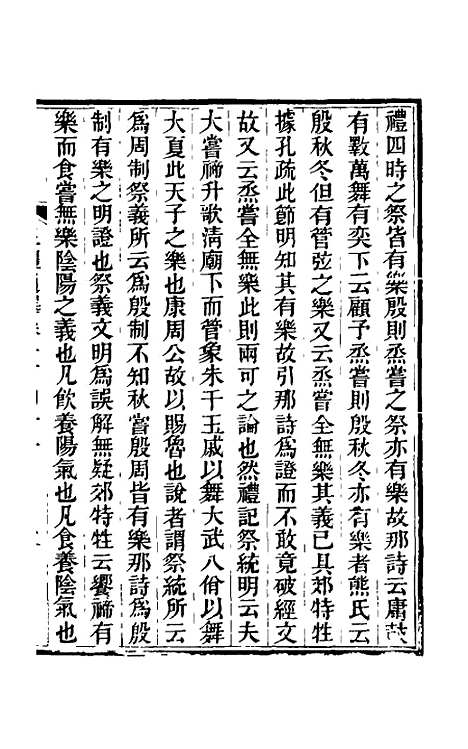 禮四時之祭皆有樂殷則烝嘗之祭亦有樂故那詩云庸鼓
有斁萬舞有奕下云顧予烝嘗則殷秋冬亦有樂者熊氏云
殷秋冬但有管弦之樂又云烝嘗全無樂其義已具郊特牲
據孔疏此節明知其有樂故引那詩爲證而不敢竟破經文
故又云烝嘗全無樂此則兩可之論也然禮記祭統明云夫
大嘗禘升歌淸廟下而管象朱干玉戚以舞大武八佾以舞
大夏此天子之樂也康周公故以賜魯也說者謂祭統所云
爲周制祭義所云爲殷制不知秋嘗殷周皆有樂那詩爲殷
制有樂之明證也祭義文明爲誤解無疑郊特牲云饗禘有
樂而食嘗無樂陰陽之義也凡飮養陽氣也凡食養陰氣也